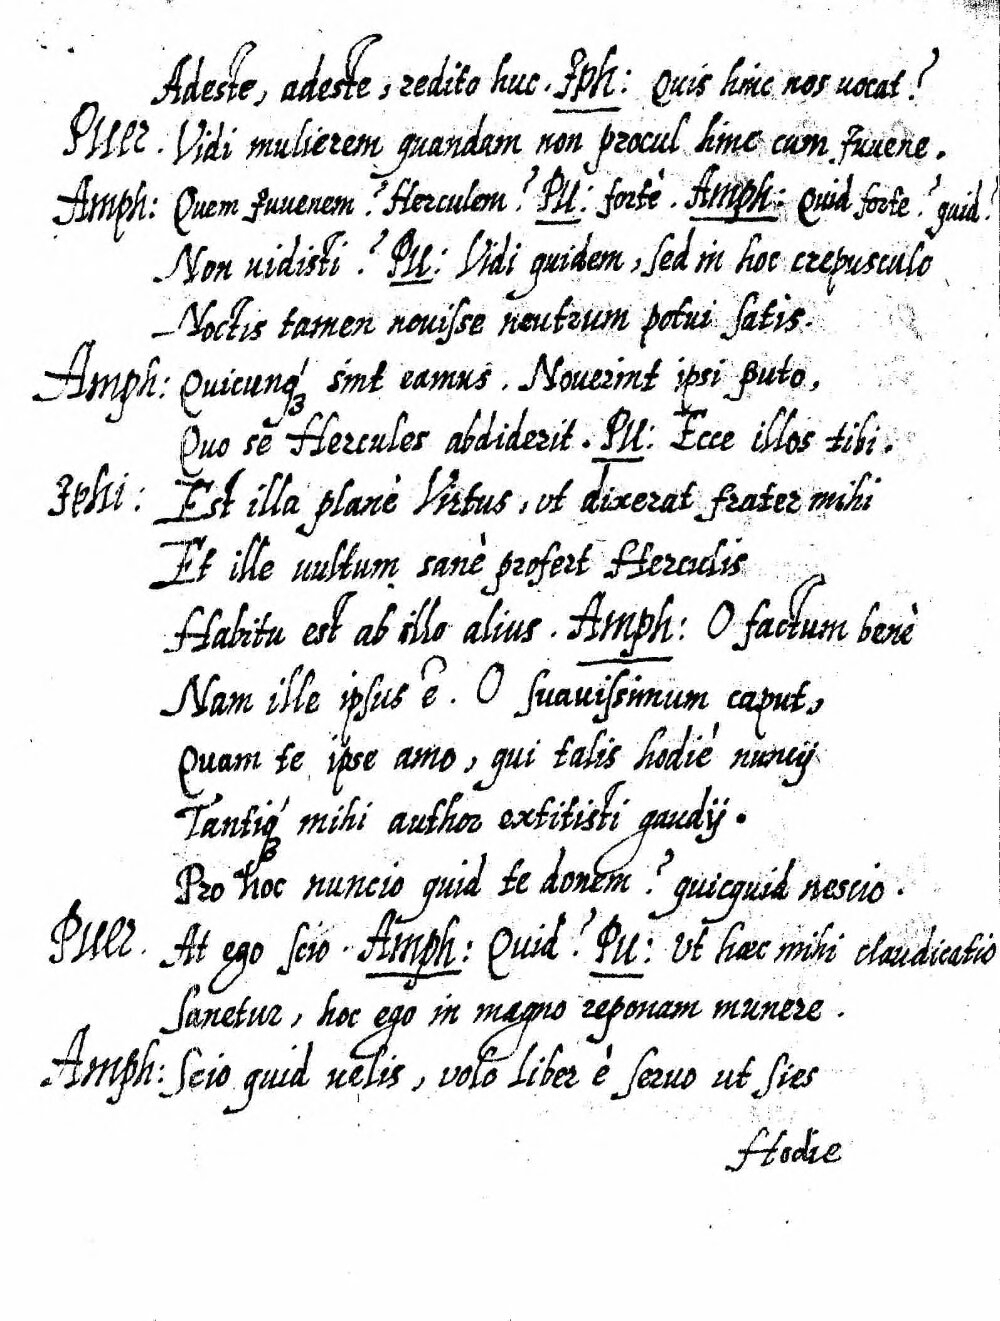 Adeste, adeste, redito huc. Iph: Quis hinc nos uocat?
Puer. Vidi mulierem quandam non procul hinc cum Iuuene.
Amph: Quem Iuuenem? Herculem? Pu: fortè. Amph: Quid forte? quid?
Non uidisti? Pu: Vidi quidem, sed in hoc crepusculo
Noctis tamen nouisse neutrum potui satis.
Amph: Quicunq́ꝫ sint eamus. Nouerint ipsi puto,
Quo se Hercules abdiderit. Pu: Ecce illos tibi.
Iphi: Est illa planè Virtus, ut dixerat frater mihi
Et ille uultum sanè profert Herculis
Habitu est ab illo alius. Amph: O factum benè
Nam ille ipsus ē. O suauissimum caput,
Quam te ipse amo, qui talis hodiè nuncij
Tantiq́ꝫ mihi author extitisti gaudij.
Pro hoc nuncio quid te donem? quicquid nescio.
Puer. At ego scio. Amph: Quid? Pu: Ut hæc mihi claudicatio
Sanetur, hoc ego in magno reponam munere.
Amph: Scio quid uelis, volo liber è seruo ut sies
Hodie